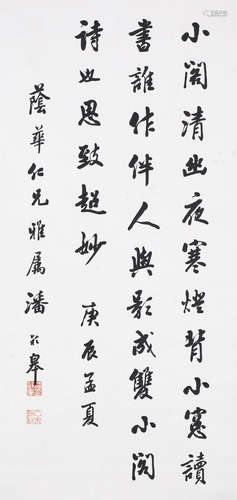 小閣清幽夜寒燈背小窻讀
書誰作伴人與影成雙小閣
詩也思致超妙 庚辰孟夏
蔭華仁兄雅屬 潘齡皋